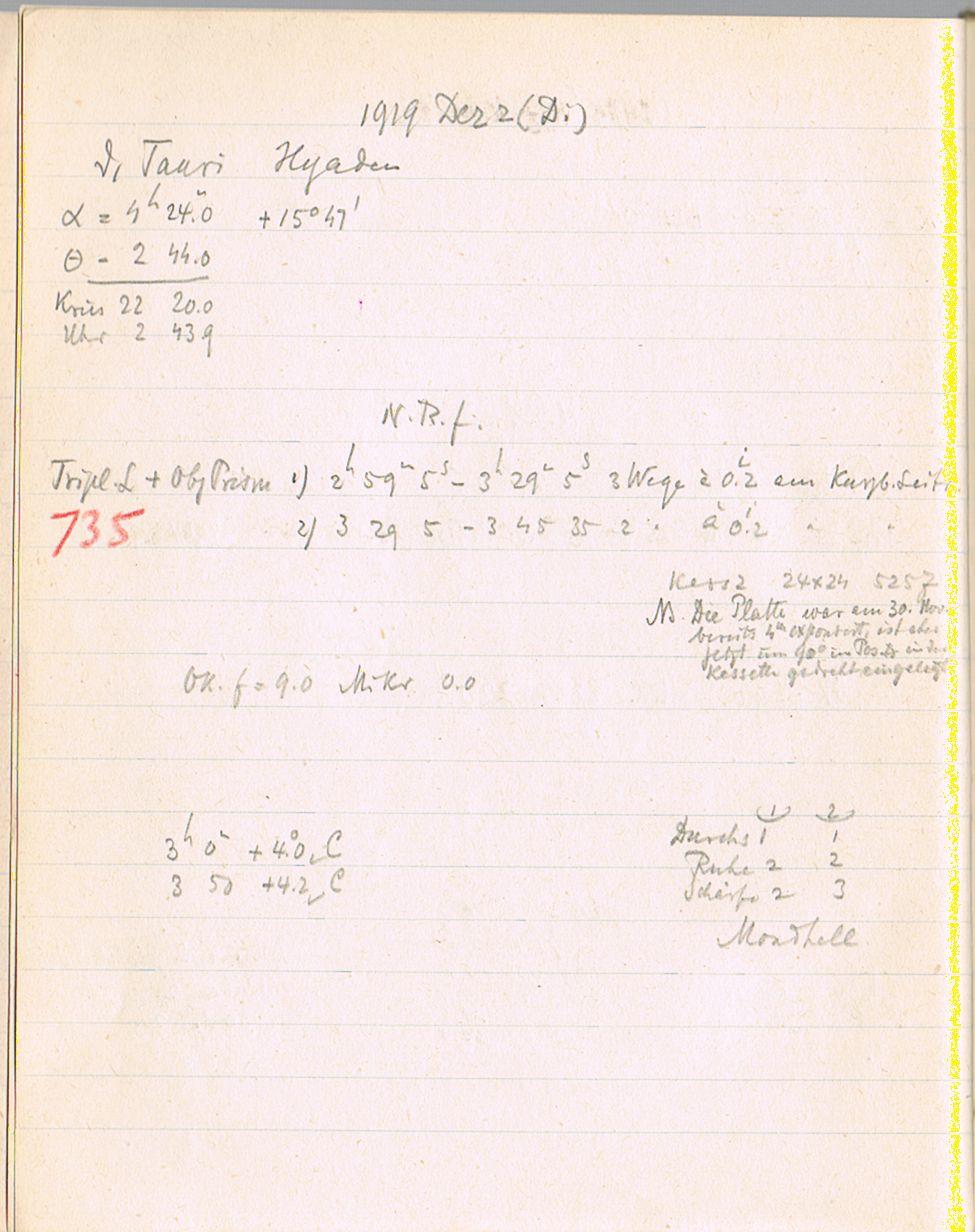 1919 Dez 2 (Di)
ϑ₁ Tauri Hyaden
α = 4ʰ 24.ᵐ0 +15°47'
Θ = 2 44.0
Kreis 22 20.0
Uhr 2 43.9
N.R.f.
Tripl. L + Obj Prism 1) 2ʰ 59ᵐ 5ˢ – 3ʰ 29ᵐ 5ˢ 3 Wege à 0.2 am
735 2) 3 29 5 – 3 45 35 2 " à 0.2 " "
Kass 2 24x24 5257
NB. Die Platte war am 30. Nov.
bereits 4ᵐ exponiert, ist aber
jetzt um 90° in Pos. in der
Kassette gedreht eingelegt
OK. f = 9.0 Mikr 0.0
1 2
3ʰ 0ᵐ +4.°0 C Durchs 1 1
3 50 +4.2 C Ruhe 2 2
Schärfe 2 3
Mondhell